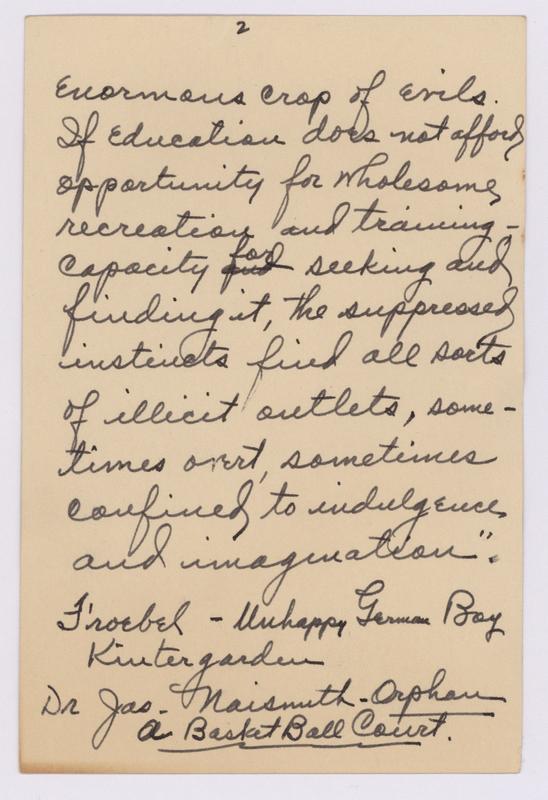 2
Enormous crop of evils.
If Education does not afford
opportunity for wholesome
recreation and training-
capacity for seeking and
finding it, the suppressed
instincts find all sorts
of illicit outlets, some-
times overt, sometimes
confined to indulgence
and imagination".
Froebel - Unhappy German Boy
Kintergarden
Dr Jas- Naismuth-Orphan
A BasketBall Court.